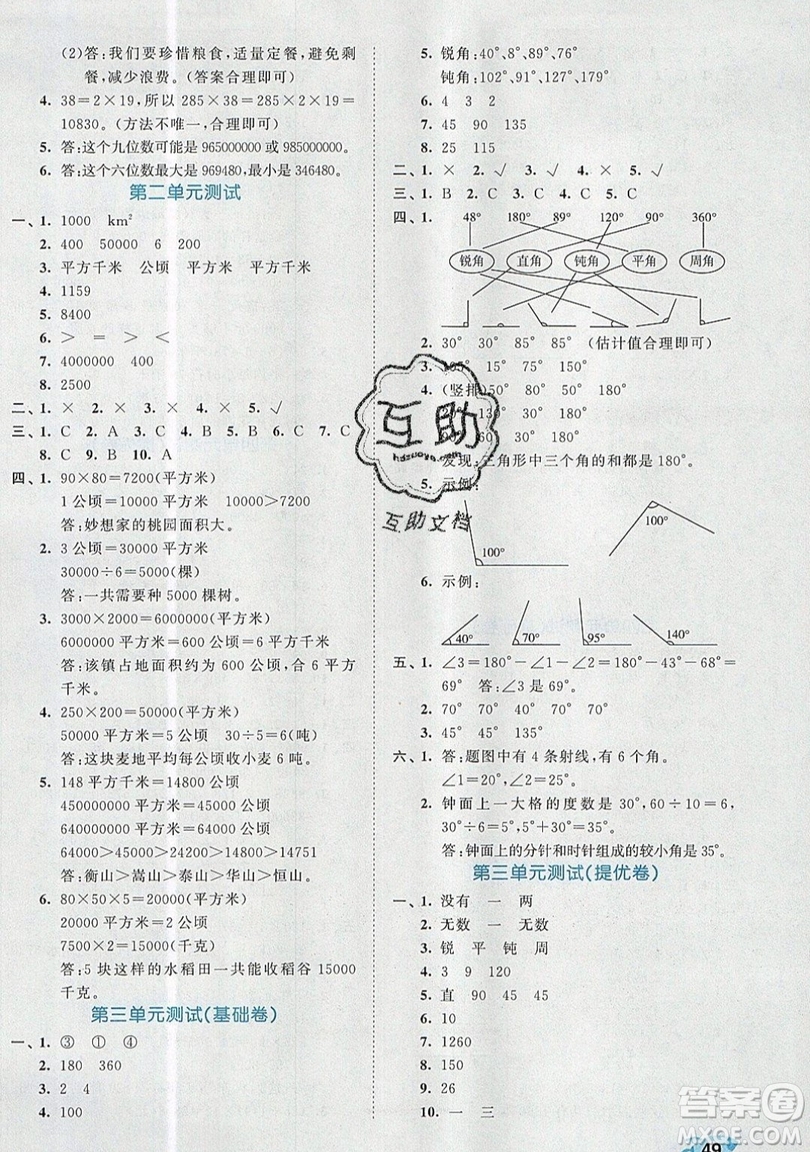 (2)答:我们要珍惜粮食,适量定餐,避免剩
餐,减少浪费。(答案合理即可)
4. 38=2×19,所以 285×38=285×2×19=
10830。(方法不唯一,合理即可)
5. 答:这个九位数可能是 965000000 或 985000000。
6. 答:这个六位数最大是 969480,最小是 346480。
第二单元测试
一、1. 1000 km²
2. 400 50000 6 200
3. 平方千米 公顷 平方千米 平方千米
4. 1159
5. 8400
6. > = > <
7. 4000000 400
8. 2500
二、1. × 2. × 3. × 4. × 5. √
三、1. C 2. A 3. C 4. B 5. B 6. B 7. C
8. C 9. B 10. A
四、1. 90×80=7200(平方米)
1 公顷=10000 平方米 10000>7200
答:妙想家的桃园面积大。
2. 3 公顷=30000 平方米
30000÷6=5000(棵)
答:一共需要种 5000 棵树。
3. 3000×2000=6000000(平方米)
6000000 平方米=600 公顷=6 平方千米
答:该镇占地面积约为 600 公顷,合 6 平方
千米。
4. 250×200=50000(平方米)
50000 平方米=5 公顷 30÷5=6(吨)
答:这块麦地平均每公顷收小麦 6 吨。
5. 148 平方千米=14800 公顷
450000000 平方米=45000 公顷
640000000 平方米=64000 公顷
64000>45000>24200>14800>14751
答:衡山>嵩山>泰山>华山>恒山
6. 80×50×5=20000(平方米)
20000 平方米=2 公顷
7500×2=15000(千克)
答:5 块这样的水稻田一共能收稻谷 15000
千克。
第三单元测试(基础卷)
一、1. ③ ① ④
2. 180 360
3. 2 4
4. 100
5. 锐角:40°、8°、89°、76°
钝角:102°、91°、127°、179°
6. 4 3 2
7. 45 90 135
8. 25
二、1. × 2. √ 3. × 4. √ 5. √
三、1. B 2. C 3. C 4. B 5. C
四、1. 48° 180° 89° 120° 90° 360°
锐角 直角 钝角 平角 周角
2. 30° 30° 85° 85° (估计值合理即可)
3. 105° 75° 150°
4. (竖排)50° 30° 30°
130° 30°
60° 90°
发现:三角形中三个角的和都是 180°。
5. 示例:
100° 100°
6. 示例:
40° 70° 95° 140°
五、1. ∠3=180°-∠1-∠2=180°-46°-65°=
69° 答:∠3 是 69°。
2. 70° 70° 20° 70°
3. 45° 45° 135°
六、1. 答:题图中有 4 条射线,有 6 个角。
∠1=20° ∠2=120°
2. 钟面上一大格的度数是 30°,60÷10=6,
30°÷6=5°,30°+5°=35°
答:钟面上的分针和时针组成的较小角是 35°。
第三单元测试(提优卷)
一、1. 没有 一 两
2. 无数 一 无数
3. 锐 平 钝 周
4. 3 9 120
5. 直 90 45
6. 10
7. 1260
8. 150
9. 26
10. 一 三
互助
互助文档
答案圈
MXQE.COM
49